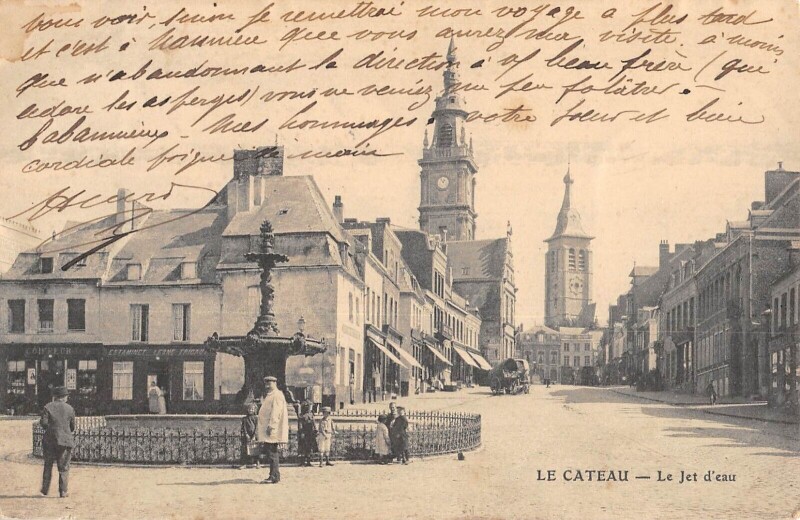 vous voir, sinon je remettrai mon voyage à plus tard
et c'est à hannieu que vous aurez ma visite, à moins
que n'abandonnant la direction à vf beau frère (qui
adore les asperges) vous ne veniez un peu folâtrer
Mes hommages à votre soeur et bien
cordiale poignée de main
LE CATEAU — Le Jet d'eau